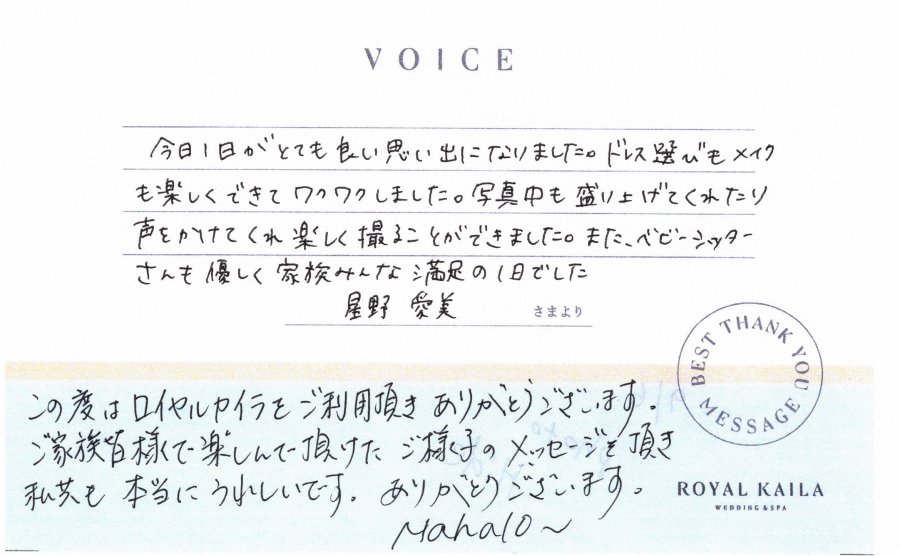 VOICE
今日1日がとても良い思い出になりました。ドレス選びもメイク
も楽しくできてワクワクしました。写真中も盛り上げてくれたり
声をかけてくれ楽しく撮ることができました。また、ベビーシッター
さんも優しく家族みんな満足の1日でした
星野 愛美 さまより
BEST THANK YOU MESSAGE
この度はロイヤルカイラをご利用頂きありがとうございます。
ご家族皆様で楽しんで頂けたご様子のメッセージを頂き
私共も本当にうれしいです。ありがとうございます。
Mahalo~
ROYAL KAILA
WEDDING & SPA